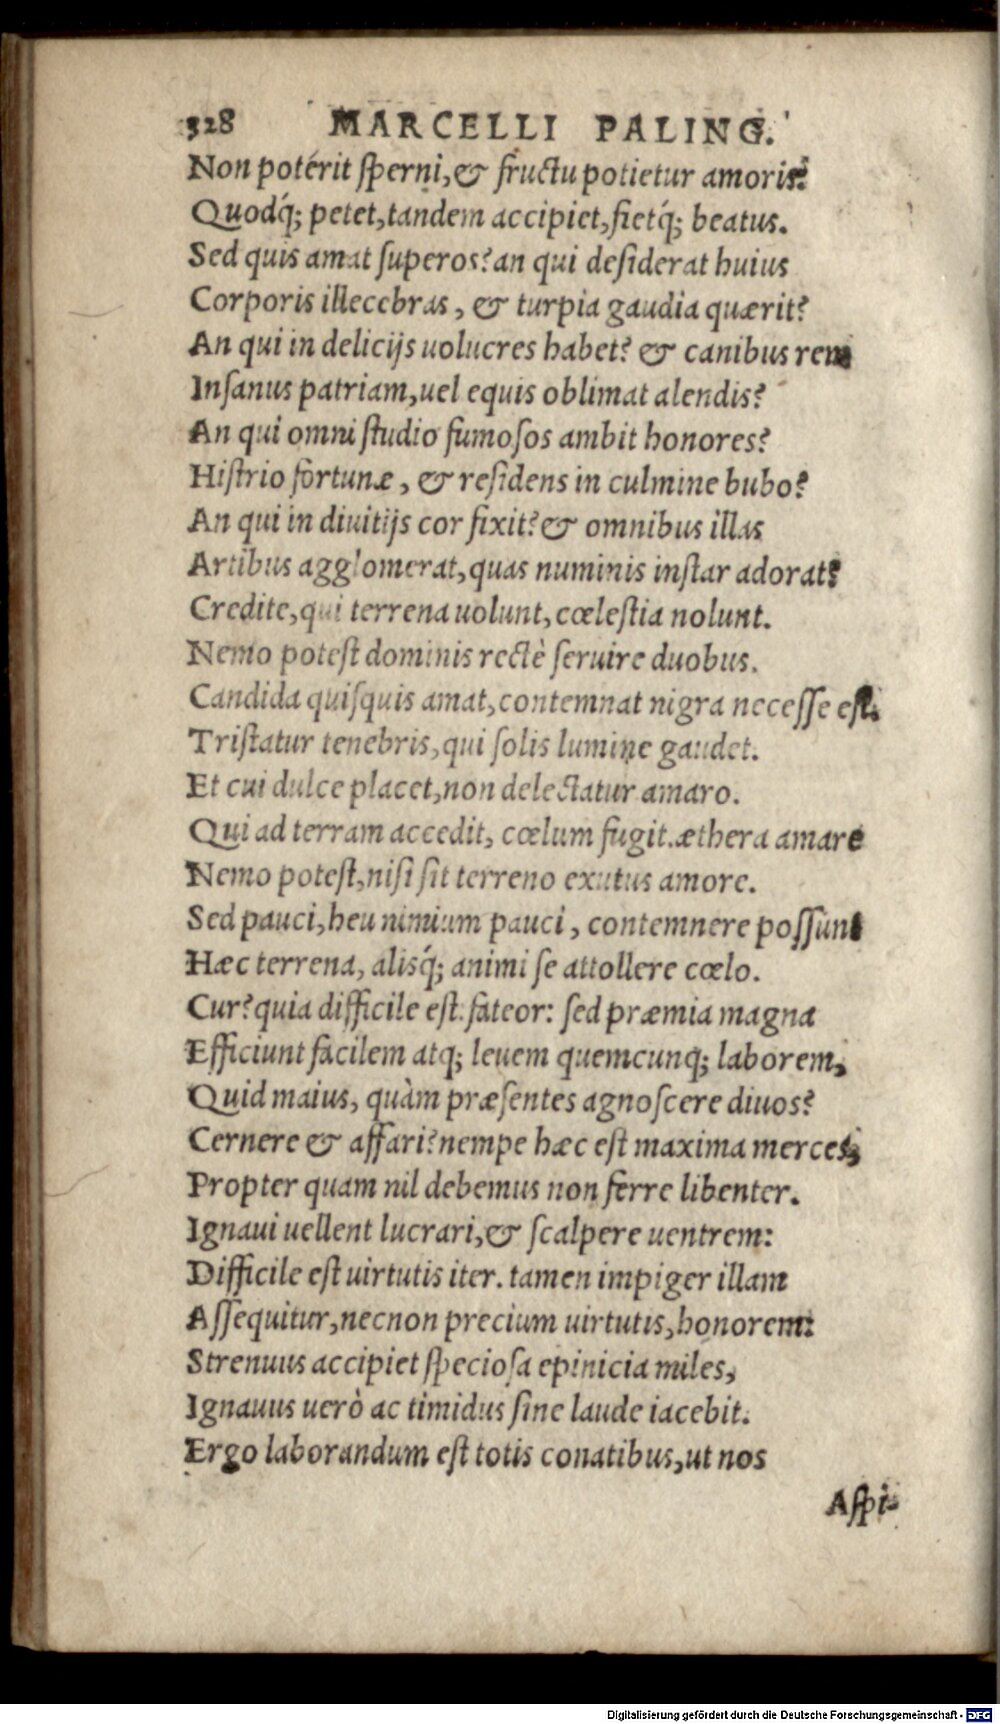 328 MARCELLI PALING.
Non poterit ſperni,& fructu potietur amoris:
Quodq́; petet,tandem accipiet,fietq́; beatus.
Sed quis amat ſuperos?an qui deſiderat huius
Corporis illecebras, & turpia gaudia quærit?
An qui in delicijs uolucres habet? & canibus rem
Inſanus patriam,uel equis oblimat alendis?
An qui omni ſtudio fumoſos ambit honores?
Hiſtrio fortunæ, & reſidens in culmine bubo?
An qui in diuitijs cor fixit?& omnibus illas
Artibus agglomerat,quas numinis inſtar adorat?
Credite,qui terrena uolunt,cœleſtia nolunt.
Nemo poteſt dominis rectè ſeruire duobus.
Candida quiſquis amat,contemnat nigra neceſſe eſt.
Triſtatur tenebris,qui ſolis lumine gaudet.
Et cui dulce placet,non delectatur amaro.
Qui ad terram accedit, cœlum fugit.æthera amare
Nemo poteſt,niſi ſit terreno exutus amore.
Sed pauci,heu nimium pauci, contemnere poſſunt
Hæc terrena, alisq́; animi ſe attollere cœlo.
Cur?quia difficile eſt.fateor: ſed præmia magna
Efficiunt facilem atq; leuem quemcunq; laborem,
Quid maius, quàm præſentes agnoſcere diuos?
Cernere & affari?nempe hæc eſt maxima merces,
Propter quam nil debemus non ferre libenter.
Ignaui uellent lucrari,& ſcalpere uentrem:
Difficile eſt uirtutis iter. tamen impiger illam
Aſſequitur,necnon precium uirtutis,honorem:
Strenuus accipiet ſpecioſa epinicia miles,
Ignauus uerò ac timidus ſine laude iacebit.
Ergo laborandum eſt totis conatibus,ut nos
Aſpi-
Digitalisierung gefördert durch die Deutsche Forschungsgemeinschaft - DFG